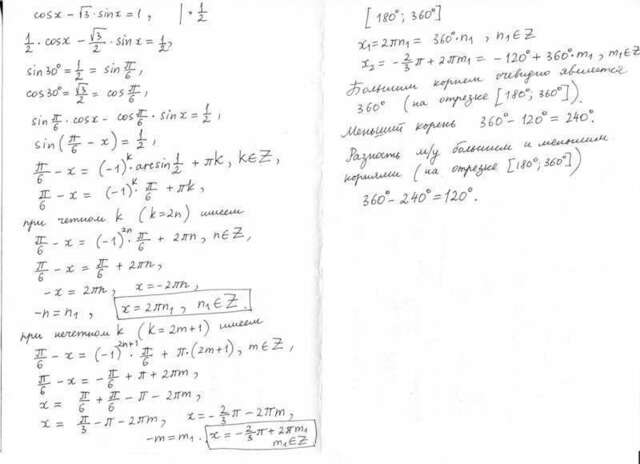 cosx - √3 · sinx = 1, | · 1/2
1/2 · cosx - √3/2 · sinx = 1/2,
sin30° = 1/2 = sin π/6,
cos30° = √3/2 = cos π/6,
sin π/6 · cosx - cos π/6 · sinx = 1/2,
sin(π/6 - x) = 1/2,
π/6 - x = (-1)^k · arcsin 1/2 + πk, k∈Z,
π/6 - x = (-1)^k · π/6 + πk,
при четном k (k=2n) имеем
π/6 - x = (-1)^2n · π/6 + 2πn, n∈Z,
π/6 - x = π/6 + 2πn,
-x = 2πn, x = -2πn,
-n = n₁, x = 2πn₁, n₁∈Z.
при нечетном k (k=2m+1) имеем
π/6 - x = (-1)^2n+1 · π/6 + π·(2m+1), m∈Z,
π/6 - x = -π/6 + π + 2πm,
x = π/6 + π/6 - π - 2πm,
x = π/3 - π - 2πm, x = -2/3 π - 2πm,
-m = m₁. x = -2/3 π + 2πm₁
m₁∈Z
[180°; 360°]
x₁ = 2πn₁ = 360°·n₁, n₁∈Z
x₂ = -2/3 π + 2πm₁ = -120° + 360°·m₁, m₁∈Z
Большим корнем очевидно является
360° (на отрезке [180°; 360°]).
Меньший корень 360° - 120° = 240°.
Разность м/у большим и меньшим
корнями (на отрезке [180°; 360°])
360° - 240° = 120°.